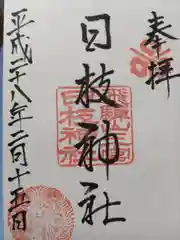 奉拝
日枝神社
平成二十八年二月十五日